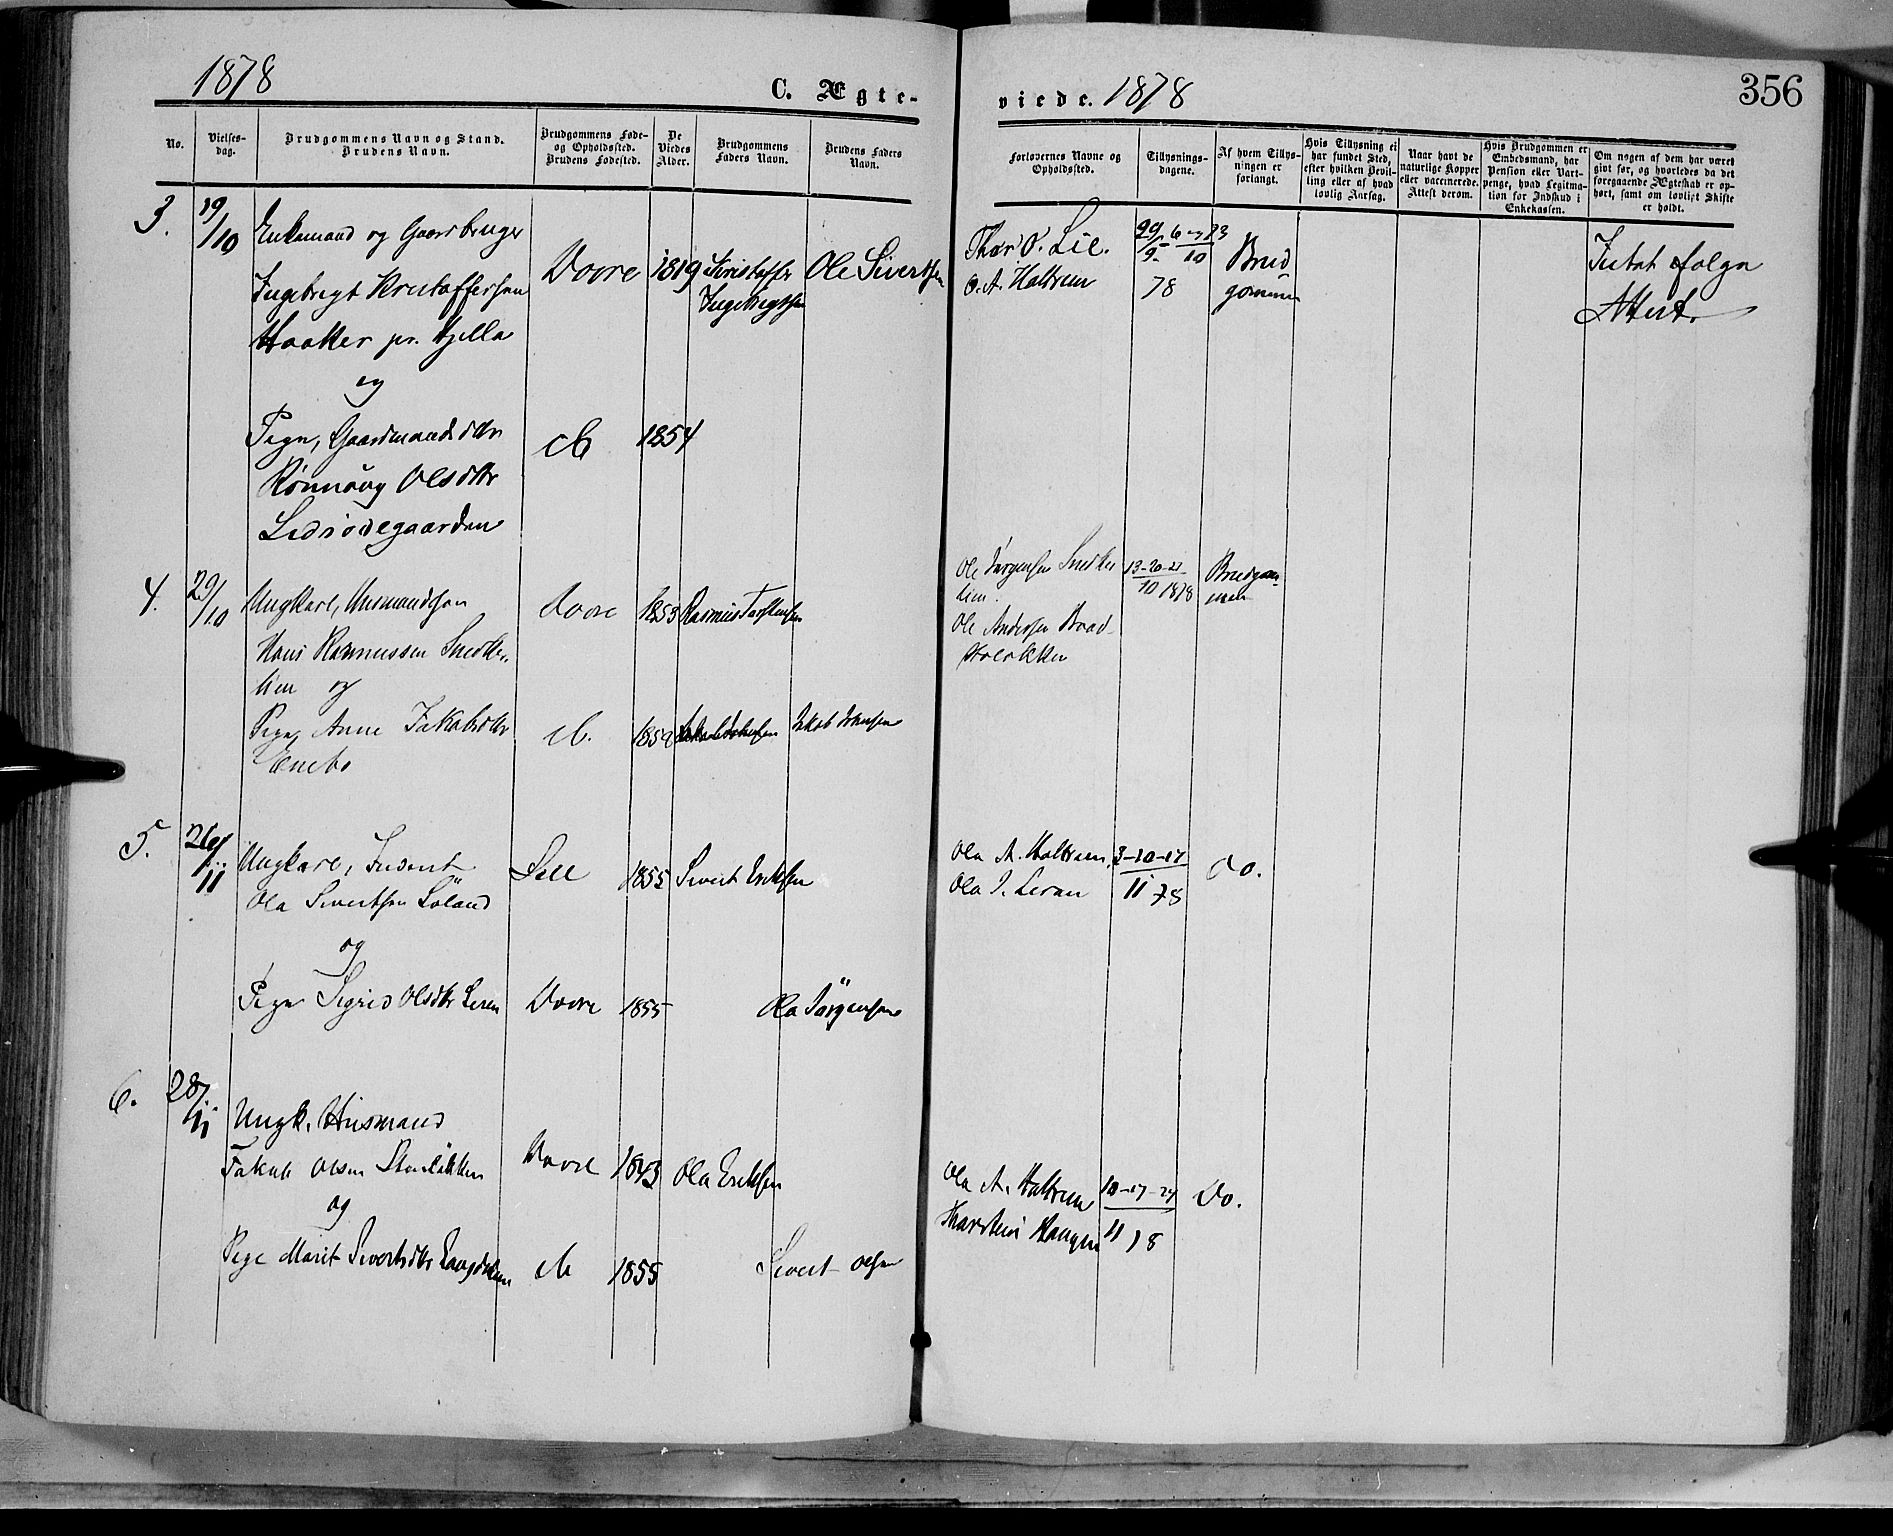 1878
C. Ægte-
viede. 1878
356
No.
Vielses-
dag.
Brudgommens Navn og Stand.
Brudens Navn.
Brudgommens Føde-
og Opholdssted.
Brudens Fødested.
De
Viedes
Alder.
Brudgommens
Faders Navn.
Brudens Faders
Navn.
Forlovernes Navne og
Opholdssted.
Tillysnings-
dagene.
Af hvem Tillys-
ningen er
forlangt.
Hvis Tillysning ei
har fundet Sted,
efter hvilken Bevil-
ling eller af hvad
lovlig Aarsag.
Naar havt de
naturlige Kopper
eller vaccinerede.
Attest derom.
Hvis Brudgommen er
Embedsmand, har
Pension eller Vart-
penge, hvad Legitima-
tion for Indskud i
Enkekassen.
Om nogen af dem har været
gift før, og hvorledes da det
foregaaende Ægteskab er op-
hørt, samt om lovligt Skifte
er holdt.
3.
19/10
Enkemand og Gaardbruger
Ingebregt Kristoffersen
Haaker pr. Hjelle
og
Pigen, Gaardmandsdttr
Rønnaug Olsdttr
Dovre
1819
Kristoffer
Ingebregtsen
Ole Sivertsen
do
1854
Thor O. Lie.
O. A. Holtrem
29/9 - 6 - 13/10
78
Brud
gommen
Attest.
4.
29/10
Ungkarl, Husmandssøn
Hans Rasmussen Snekker-
lien og
Pige, Anne Jakobsdttr
Enebo
Dovre
1853
Rasmus Torstensen
do.
Jakob Johansen
Ole Jørgensen Snekker
lien.
Ole Andersen Braad-
13-20-27
10 1878
Brudgom-
men
5.
26/11
Ungkarl, Inderst
Ola Sivertsen Løland
og
Pige Sigrid Olsdttr Leren
Sell
1855
Sivert Eriksen
Dovre
1855
Ola Jørgensen
Ola A. Holtrem
Ola J. Leren
3-10-17
11 78
do.
6.
28/11
Ungk. Husmand
Jakob Olsen
og
Pige Marit Sivertsdttr
Dovre
1843
Ola Eriksen
do
1855
Sivert Olsen
Ola A. Holtrem
Thorstein Haugen
10-17-24
11 78
Do.